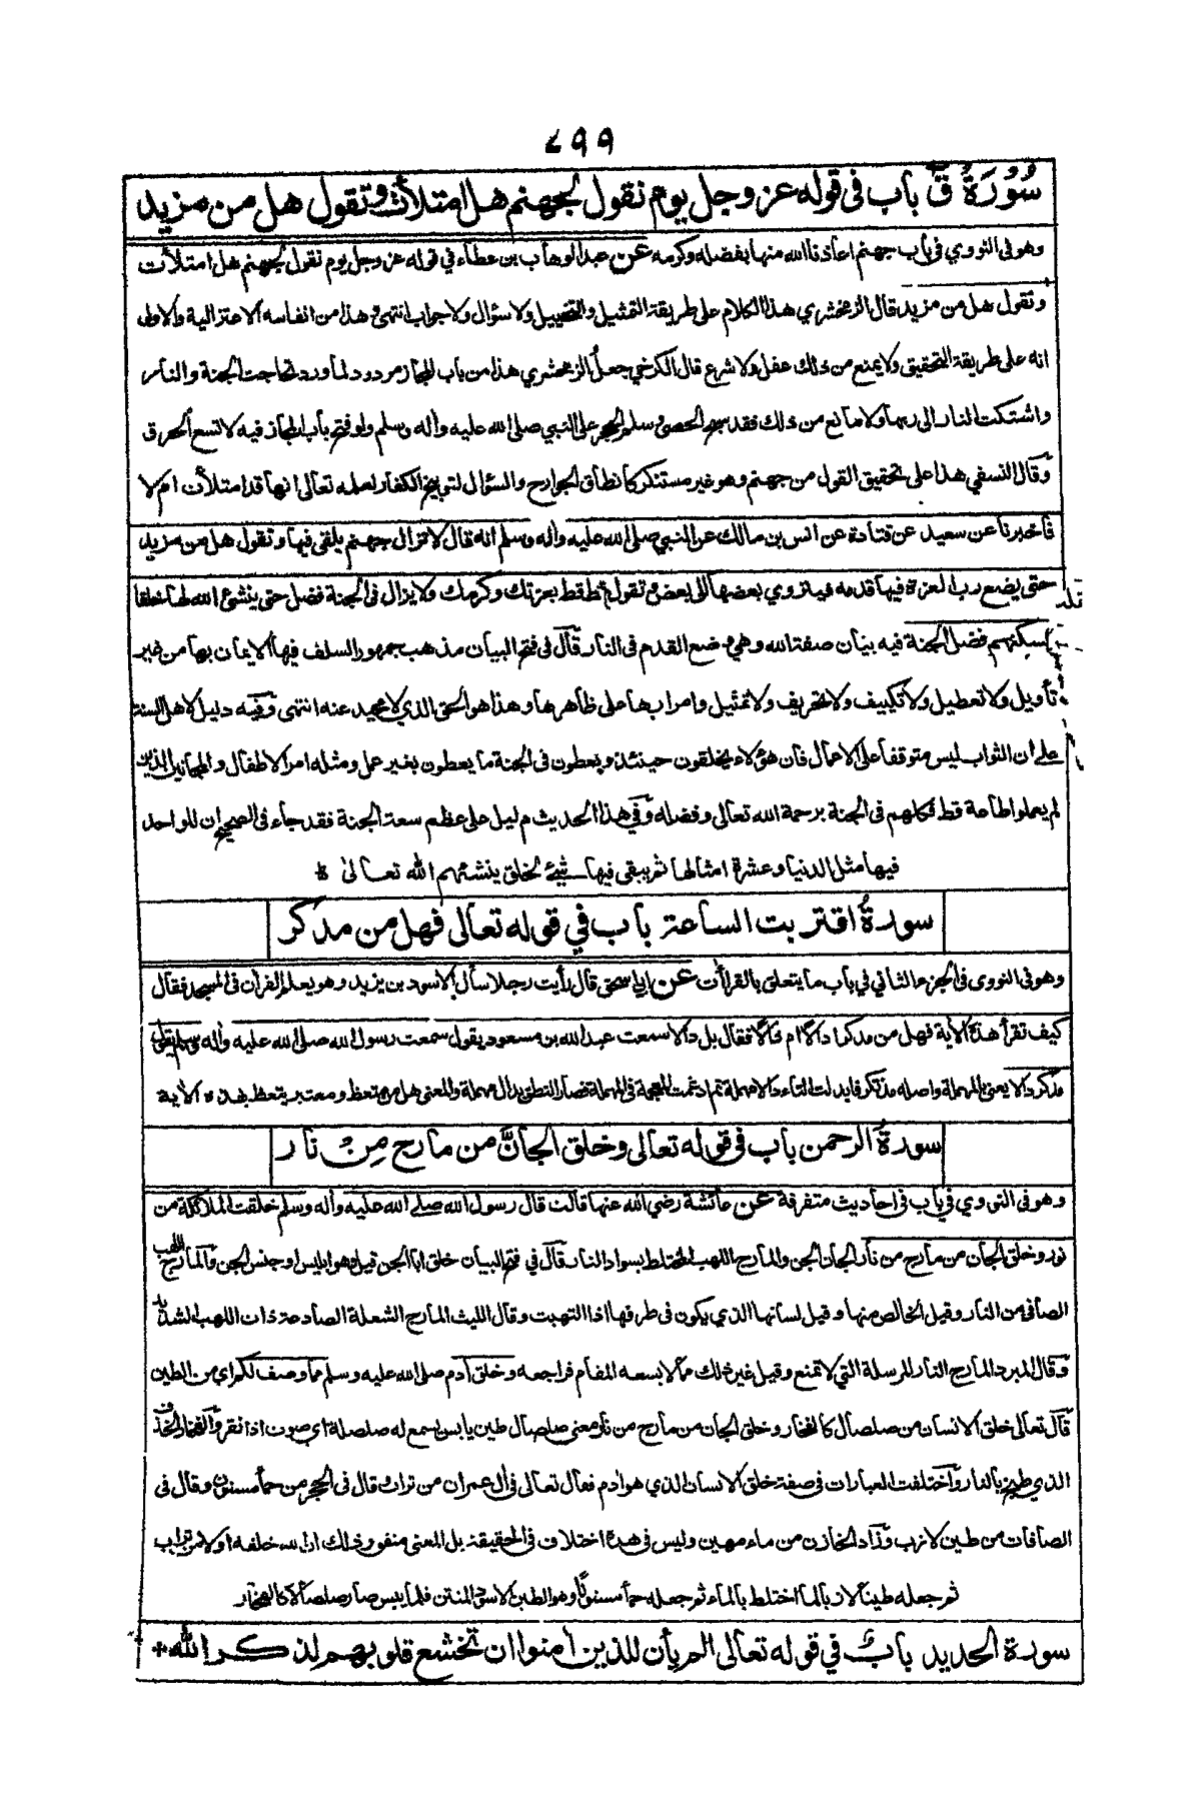 ٧٩٩
سُوْرَةُ قٓ باب فى قوله عز وجل يوم نقول لجهنم هل امتلأت وتقول هل من مزيد
وهو فى النووي فى باب جهنم اعاذنا الله منها بفضله وكرمه عن عبد الوهاب بن عطاء في قوله عز وجل يوم نقول لجهنم هل امتلأت
وتقول هل من مزيد قال الزمخشري هذا الكلام على طريقة التمثيل والتخييل ولا سؤال ولا جواب انتهى وهذا من انفاسه الاعتزالية والاولى
انه على طريقة التحقيق ولا يمنع من ذلك عقل ولا شرع قال الكرخي جعل الزمخشري هذا من باب المجاز مردود لما ورد تحاجت الجنة والنار
واشتكت النار الى ربها ولا مانع من ذلك فقد سبح الحصى وسلم الحجر على النبي صلى الله عليه واله وسلم ولو فتح باب المجاز فيه لاتسع الخرق
وقال النسفي هذا على تحقيق القول من جهنم وهو غير مستنكر كانطاق الجوارح والسؤال لتوبيخ الكفار لعلمه تعالى انها قد امتلأت ام لا
فاخبرنا عن سعيد عن قتادة عن انس بن مالك عن النبي صلى الله عليه واله وسلم انه قال لا تزال جهنم يلقى فيها وتقول هل من مزيد
حتى يضع رب العزة فيها قدمه فينزوي بعضها الى بعض وتقول قط قط بعزتك وكرمك ولا يزال فى الجنة فضل حتى ينشئ الله لها خلقا
فيسكنهم فضل الجنة فيه بيان صفة الله وهي وضع القدم فى النار قال فى فتح البيان مذهب جمهور السلف فيها الايمان بها من غير
تأويل ولا تعطيل ولا تكييف ولا تحريف ولا تمثيل وامرارها على ظاهرها وهذا هو الحق الذي لا محيد عنه انتهى وفيه دليل لاهل السنة
على ان الثواب ليس متوقفا على الاعمال فان هؤلاء يخلقون حينئذ ويعطون فى الجنة ما يعطون بغير عمل ومثله امر الاطفال والمجانين الذين
لم يعملوا طاعة قط فكلهم فى الجنة برحمة الله تعالى وفضله وفي هذا الحديث دليل على عظم سعة الجنة فقد جاء فى الصحيح ان للواحد
فيها مثل الدنيا وعشرة امثالها ثم يبقى فيها شيئ لخلق ينشئهم الله تعالى
سورةُ اقتربت الساعة باب في قوله تعالى فهل من مدكر
وهو فى النووى فى الجزء الثاني في باب ما يتعلق بالقرأن عن ابي اسحق قال رأيت رجلا سأل الاسود بن يزيد وهو يعلم القرأن فى المسجد فقال
كيف تقرأ هذه الآية فهل من مدكر أدالاً ام ذالا فقال بل دالا سمعت عبد الله بن مسعود يقول سمعت رسول الله صلى الله عليه واله وسلم يقول
مدكر دالا يعنى بالمهملة واصله مذتكر فابدلت التاء دالا مهملة ثم ادغمت المعجمة فى المهملة فصار النطق بدال مهملة والمعنى هل من متعظ ومعتبر يتعظ بهذه الأية
سورةُ الرحمن باب فى قوله تعالى وخلق الجانَّ من مارج مِن نار
وهو فى النووي في باب فى احاديث متفرقة عن عائشة رضي الله عنها قالت قال رسول الله صلى الله عليه واله وسلم خلقت الملائكة من
نور وخلق الجان من مارج من نار الجان الجن والمارج اللهب المختلط بسواد النار قال في فتح البيان خلق ابا الجن قيل وهو ابليس او جنس الجن والمارج اللهب
الصافي من النار وقيل الخالص منها وقيل لسانها الذي يكون فى طرفها اذا التهبت وقال الليث المارج الشعلة الصادعة ذات اللهب الشديد
وقال المبرد المارج النار المرسلة التي لا تمنع وقيل غير ذلك مما لا يسعه المقام فراجعه وخلق آدم صلى الله عليه وسلم مما وصف لكم اي من الطين
قال تعالى خلق الانسان من صلصال كالفخار وخلق الجان من مارج من نار ومعنى صلصال طين يابس يسمع له صلصلة اي صوت اذا نقر والفخار الخذف
الذي طبخ بالنار واختلفت العبارات فى صفة خلق الانسان الذي هو ادم فقال تعالى فى ال عمران من تراب وقال فى الحجر من حمأ مسنون وقال فى
الصافات من طين لازب وزاد الخازن من ماء مهين وليس فى هذه اختلاف فى الحقيقة بل المعنى متفق وذلك ان الله خلقه اولا من تراب
ثم جعله طينا لازبا لما اختلط بالماء ثم جعله حمأ مسنونا وهو الطين الاسود المنتن فلما يبس صار صلصالا كالفخار
سورة الحديد بابٌ في قوله تعالى الم يأن للذين امنوا ان تخشع قلوبهم لذكر الله